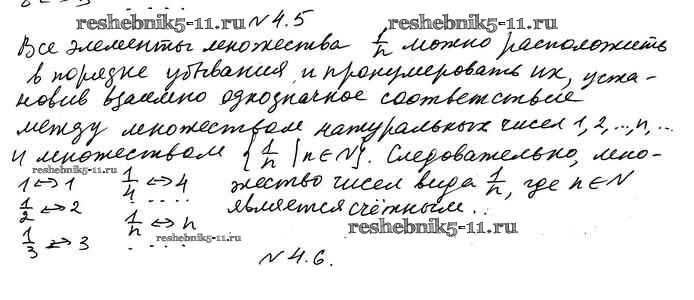 reshebnik5-11.ru №4.5 reshebnik5-11.ru
Все элементы множества 1/n можно расположить
в порядке убывания и пронумеровать их, уста-
новив взаимно однозначное соответствие
между множеством натуральных чисел 1,2,...,n,...
и множеством {1/n | n∈N}. Следовательно, мно-
reshebnik5-11.ru
1↔1 1/4↔4 жество чисел вида 1/n, где n∈N
1/2↔2 .... является счётным..
1/n↔n reshebnik5-11.ru
1/3↔3 ....
reshebnik5-11.ru
№4.6.